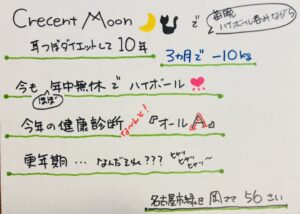 Crecent Moon で
毎晩
ハイボール呑みながら
耳つぼダイエットして10年
3ヵ月で -10kg
今も ほぼ 年中無休でハイボール
今年の健康診断 な〜んと! 『オールA』
更年期… なんだそれ???
ヒャッ ヒャッ ヒャ〜
名古屋市緑区 岡ママ 56さい